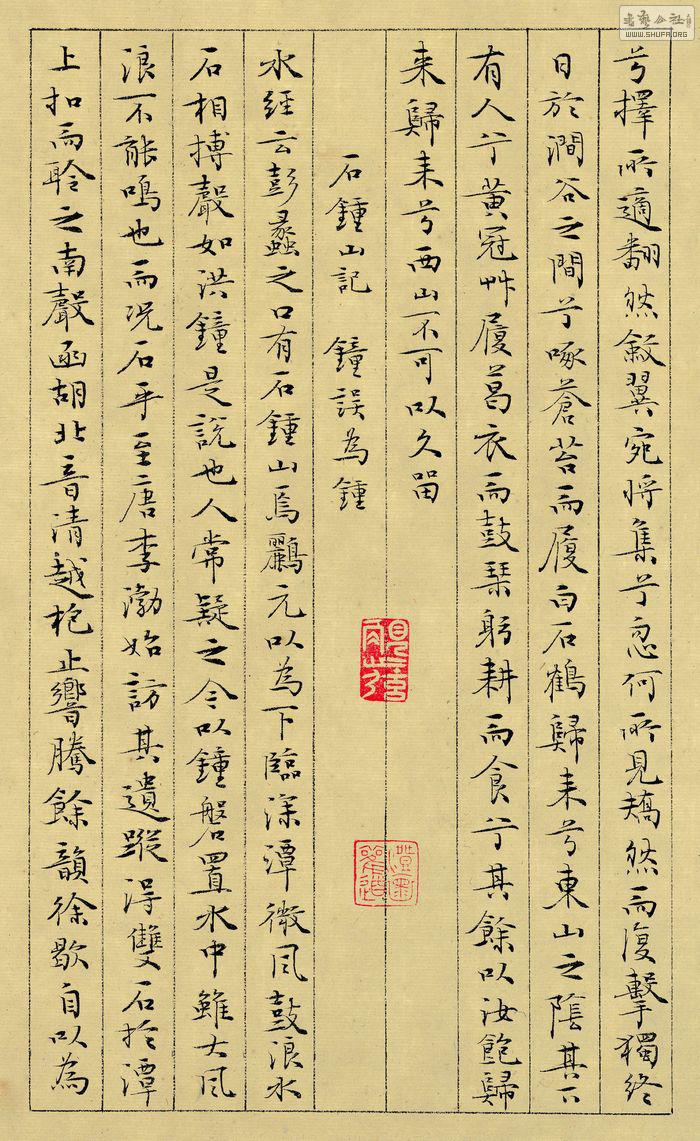 兮擇所適翻然斂翼宛將集兮忽何所見矯然而復擊獨終
日於澗谷之間兮啄蒼苔而履白石鶴歸来兮東山之陰其下
有人兮黃冠艸履葛衣而鼓琴躬耕而食兮其餘以汝飽歸
来歸来兮西山不可以久留
石鍾山記 鐘誤為鍾
水經云彭蠡之口有石鍾山焉酈元以為下臨深潭微風鼓浪水
石相搏聲如洪鐘是說也人常疑之今以鍾磬置水中雖大風
浪不能鳴也而況石乎至唐李渤始訪其遺蹤得雙石於潭
上扣而聆之南聲函胡北音清越枹止響騰餘韻徐歇自以為
書藝公社
WWW.SHUFA.ORG